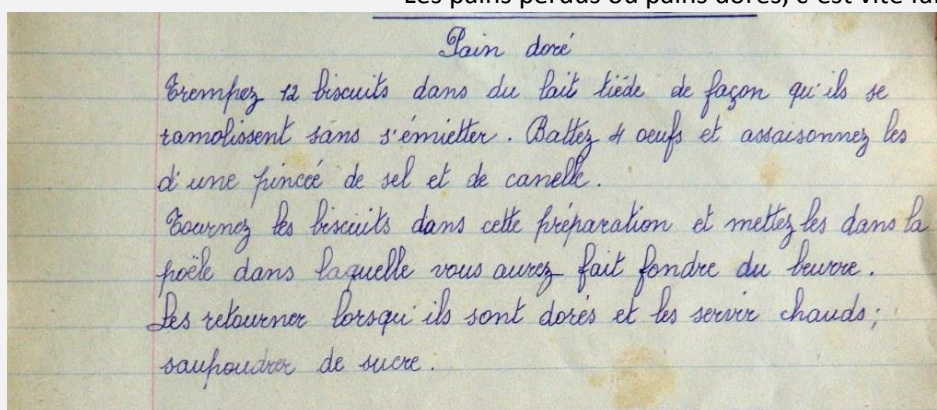 Pain doré
Trempez 12 biscuits dans du lait tiède de façon qu'ils se
ramolissent sans s'émietter. Battez 4 oeufs et assaisonnez les
d'une pincée de sel et de canelle.
Tournez les biscuits dans cette préparation et mettez les dans la
poële dans laquelle vous aurez fait fondre du beurre.
Les retourner lorsqu'ils sont dorés et les servir chauds;
saupoudrer de sucre.